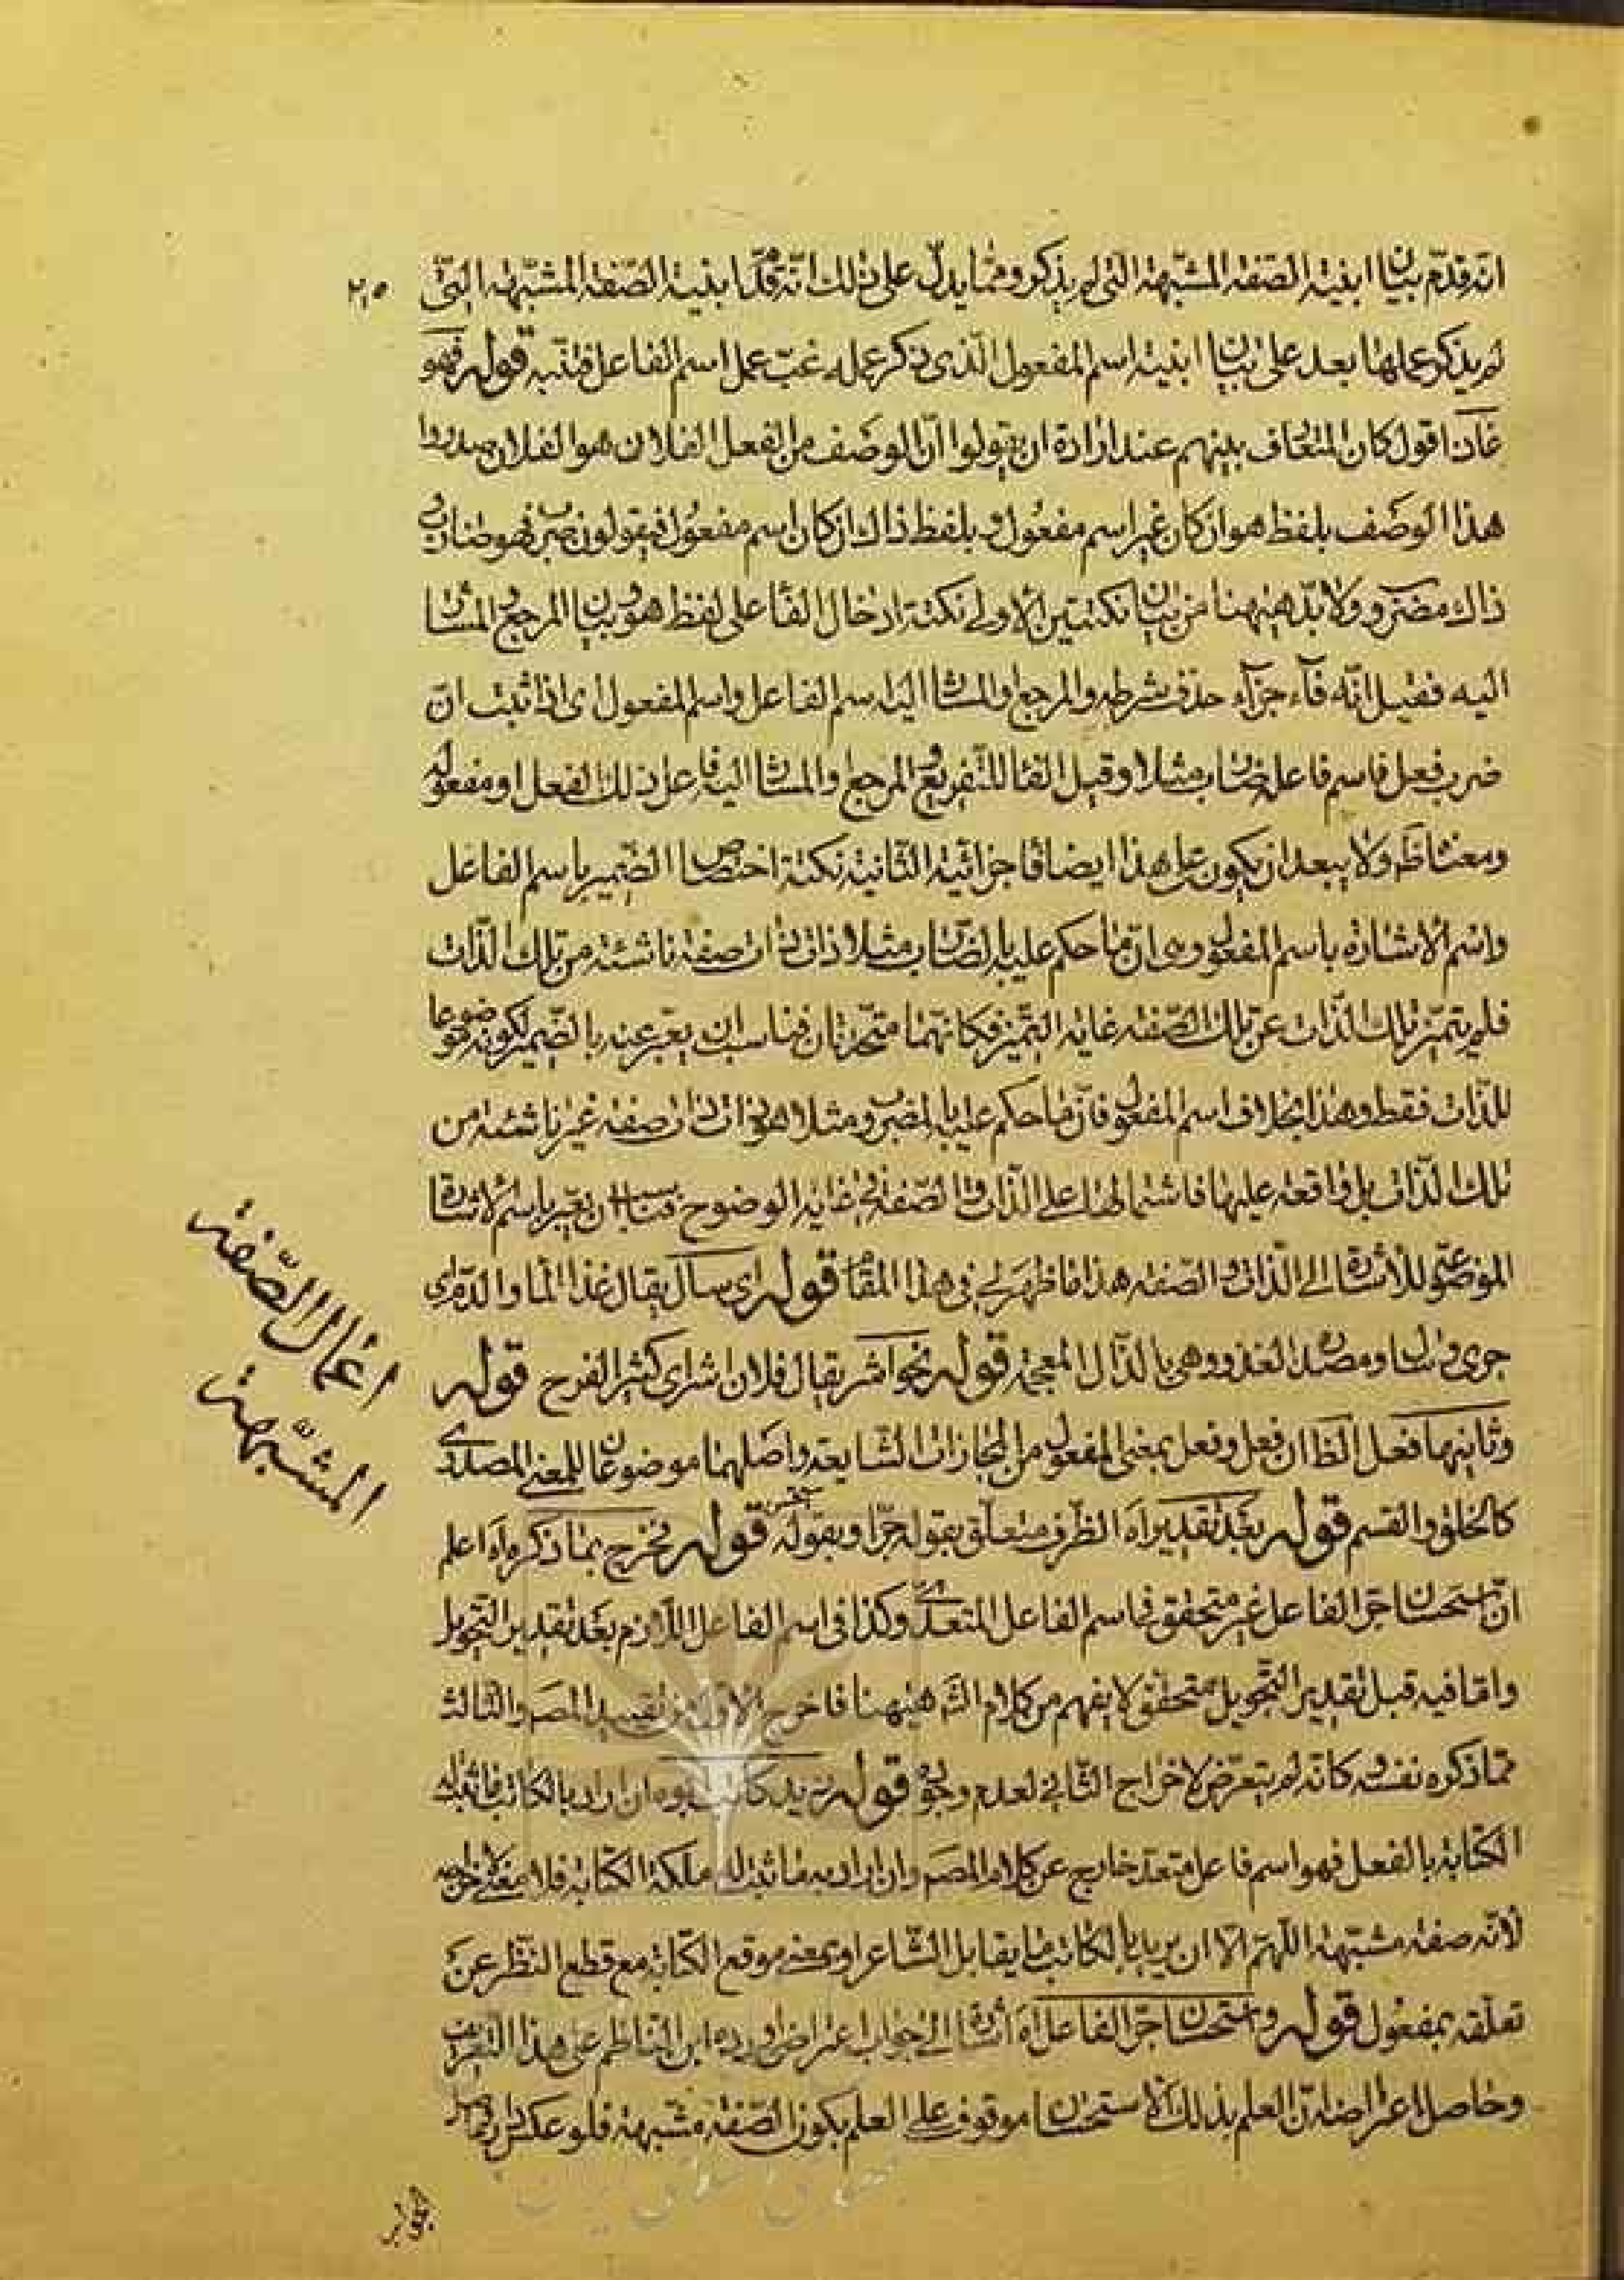 انه قدم بيان ابنية الصفة المشبهة التي لم يذكر ومما يدل على ذلك انه قدم ابنية الصفة المشبهة التي
٢١٥
لم يذكر عملها بعد على بيان ابنية اسم المفعول الذي ذكر عمله غب عمل اسم الفاعل فتنبه قوله فهو
اقول كان المتعارف بينهم عند ارادة ان يقولوا ان الوصف من الفعل الفلان هو الفلان
هذا الوصف بلفظ هو ان كان غير اسم مفعول وبلفظ ذاك ان كان اسم مفعول فيقولون ضرب فهو ضارب و
ذاك مضروب ولا بد هيهنا من بيان نكتتين الاولى نكتة ادخال الفا على لفظ هو وبيان المرجع والمشار
اليه فقيل انه فآء جزآء حذف شرطه والمرجع والمشار اليه اسم الفاعل واسم المفعول اى اذا ثبت ان
ضرب فعل فاسم فاعله ضارب مثلا وقيل الفا للتفريع والمرجع والمشار اليه فاعل ذلك الفعل او مفعوله
ومعناه ظ ولا يبعد ان يكون على هذا ايضا فا جزائية الثانية نكتة اختصاص الضمير باسم الفاعل
واسم الاشارة باسم المفعول وهى ان ما حكم عليه بالضارب مثلا ذات ذات صفة ناشئة من تلك الذات
فلم يتميز تلك الذات عن تلك الصفة غاية التميز فكانهما متحدتان فناسب ان يعبر عنه بالضمير لكونه موضوعا
للذات فقط وهذا بخلاف اسم المفعول فان ما حكم عليه بالمضروب مثلا هو ذات ذات صفة غير ناشئة من
تلك الذات بل واقعة عليها فاشتمالها على الذات والصفة في غاية الوضوح فناسب ان يعبر باسم الاشارة
الموضوع للاشارة الى الذات والصفة هذا ما ظهر لي فى هذا المقام قوله اى سال يقال غذا الماء والدم اى
جرى وسال ومصدره الغذو وهى بالذال المعجمة قوله نحو اشر يقال فلان اشر اى كثير الفرح قوله
وثانيها فعل الظ ان فعل وفعل بمعنى المفعول من المجازات الشايعة واصلهما موضوعان للمعنى المصدرى
كالخلق والقسم قوله بعد تقدير اه الظرف متعلق بقوله جرا وبقوله قوله فخرج بما ذكره اه اعلم
ان استحسان جر الفاعل غير متحقق فى اسم الفاعل المتعدى وكذا فى اسم الفاعل اللازم بعد تقدير التحويل
واما فيه قبل تقدير التحويل متحقق لا يفهم من كلام الش هيهنا فاخرج الاول من تقييد المص والثالث
مما ذكره نفسه وكانه لم يتعرض لاخراج الثاني لعدم وجوده قوله زيد كاتب ابوه ان اراد بالكاتب ما ثبت له
الكتابة بالفعل فهو اسم فاعل متعد خارج عن كلام المص وان اراد به ما ثبت له ملكة الكتابة فلا معنى لاخراجه
لانه صفة مشبهة اللهم الا ان يريد بالكاتب ما يقابل الشاعر او بمعنى موقع الكتابة مع قطع النظر عن
تعلقه بمفعول قوله واستحسان جر الفاعل اه اشارة الى جواب اعتراض اورده ابن الناظم على هذا التعريف
وحاصل اعتراضه ان العلم بذلك الاستحسان موقوف على العلم بكون الصفة مشبهة فلو عكس
اعمال الصفة
المشبهة